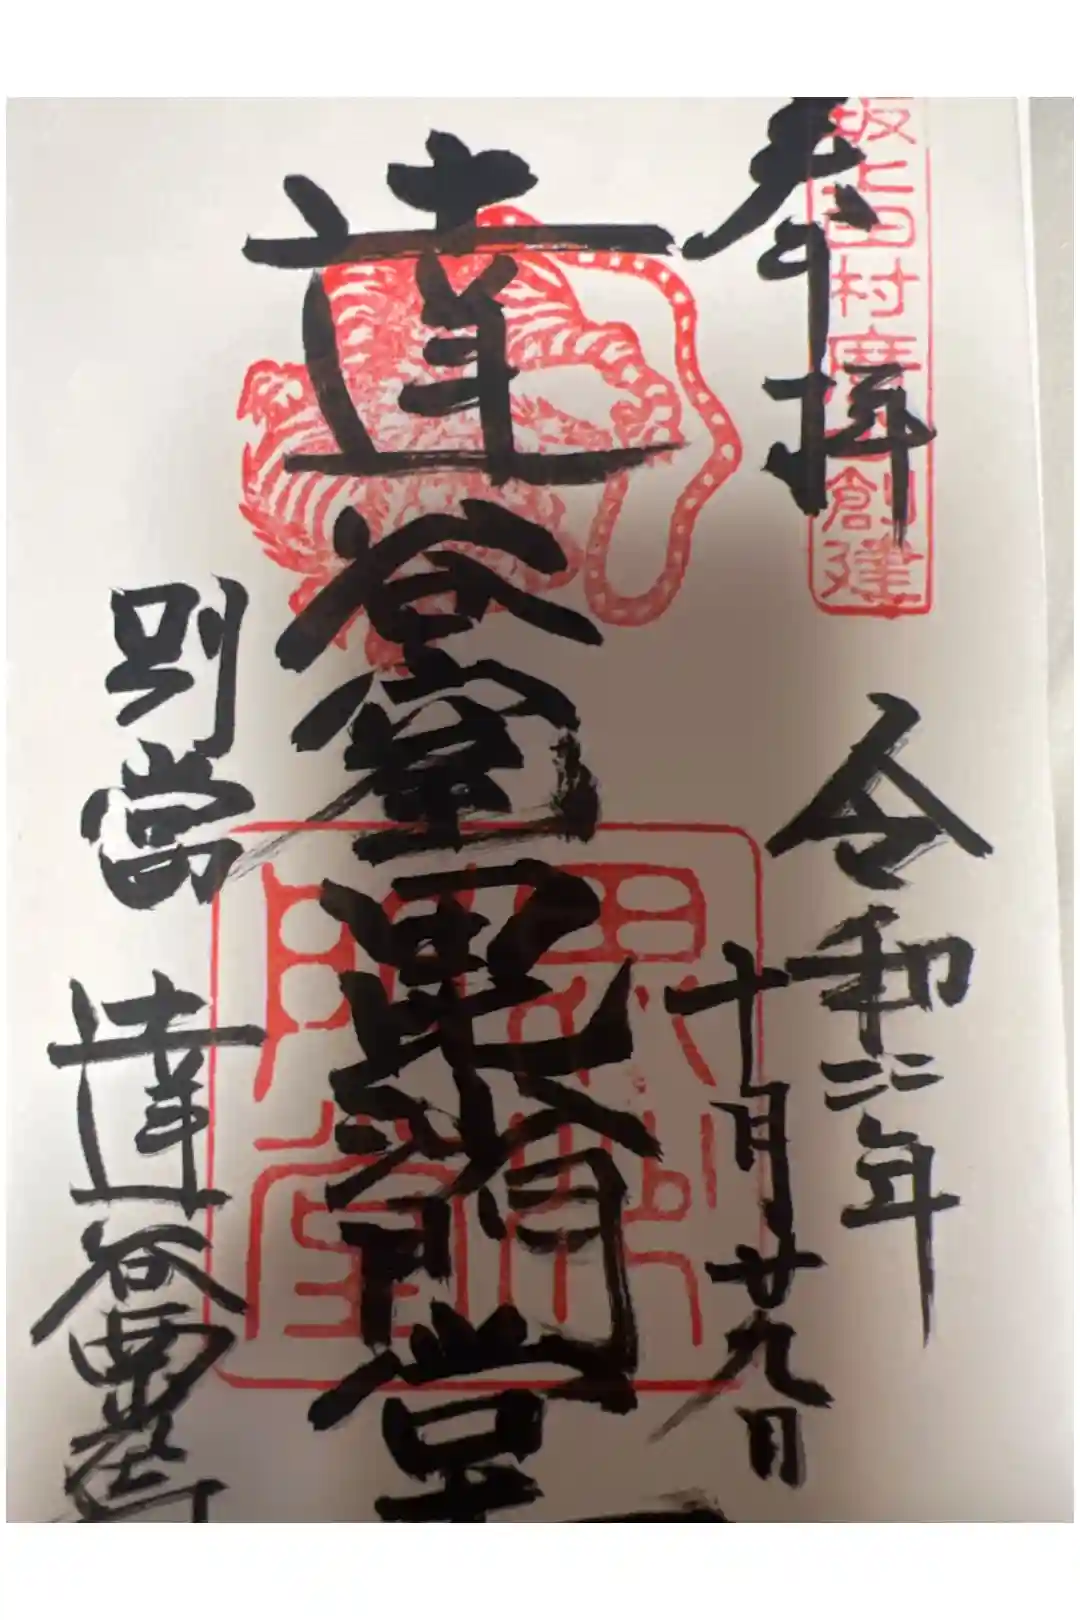 坂上田村麿創建
奉拝
令和二年
十月廿九日
達谷窟毘沙門堂
別當 達谷西光寺